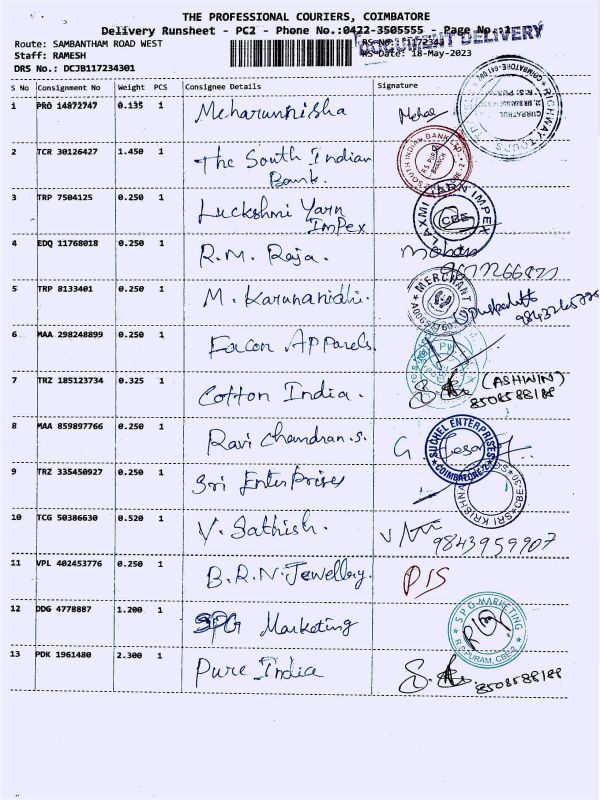 THE PROFESSIONAL COURIERS, COIMBATORE
Delivery Runsheet - PC2 - Phone No.:0422-3505555 - Page No.:1
DOCUMENT DELIVERY
Route: SAMBANTHAM ROAD WEST
Staff: RAMESH
RS-Date: 18-May-2023
DRS No.: DCJB117234301
S No Consignment No Weight PCS Consignee Details Signature
1 PRO 14872747 0.135 1 Meharunnisha Mehar
RIGHWAY TOURS
2 TCR 30126427 1.450 1 The South Indian
Bank.
SOUTH INDIAN BANK
R.S. PURAM
BRANCH
3 TRP 7504125 0.250 1 Luckshmi Yarn
Impex
LAXMI YARN IMPEX
CBE
4 EDQ 11768018 0.250 1 R.M. Raja. Mohan
5 TRP 8133401 0.250 1 M. Karunanidhi.
MERCHANT
6 MAA 298248899 0.250 1 Facon Apparels.
7 TRZ 185123734 0.325 1 Cotton India. (ASHWIN)
8508588188
8 MAA 859897766 0.250 1 Ravi Chandran.S. G.
SUCHEL ENTERPRISES
COIMBATORE-2
9 TRZ 335450927 0.250 1 Sri Enterprises
SRI KRISHNA
10 TCG 50386630 0.520 1 V. Sathish.
9843959907
11 VPL 402453776 0.250 1 B.R.N. Jewellery. PIS
12 DDG 4778887 1.200 1 SPG Marketing
S P G MARKETING
R.S.PURAM, CBE-2
13 PDK 1961480 2.300 1 Pure India
8508588188